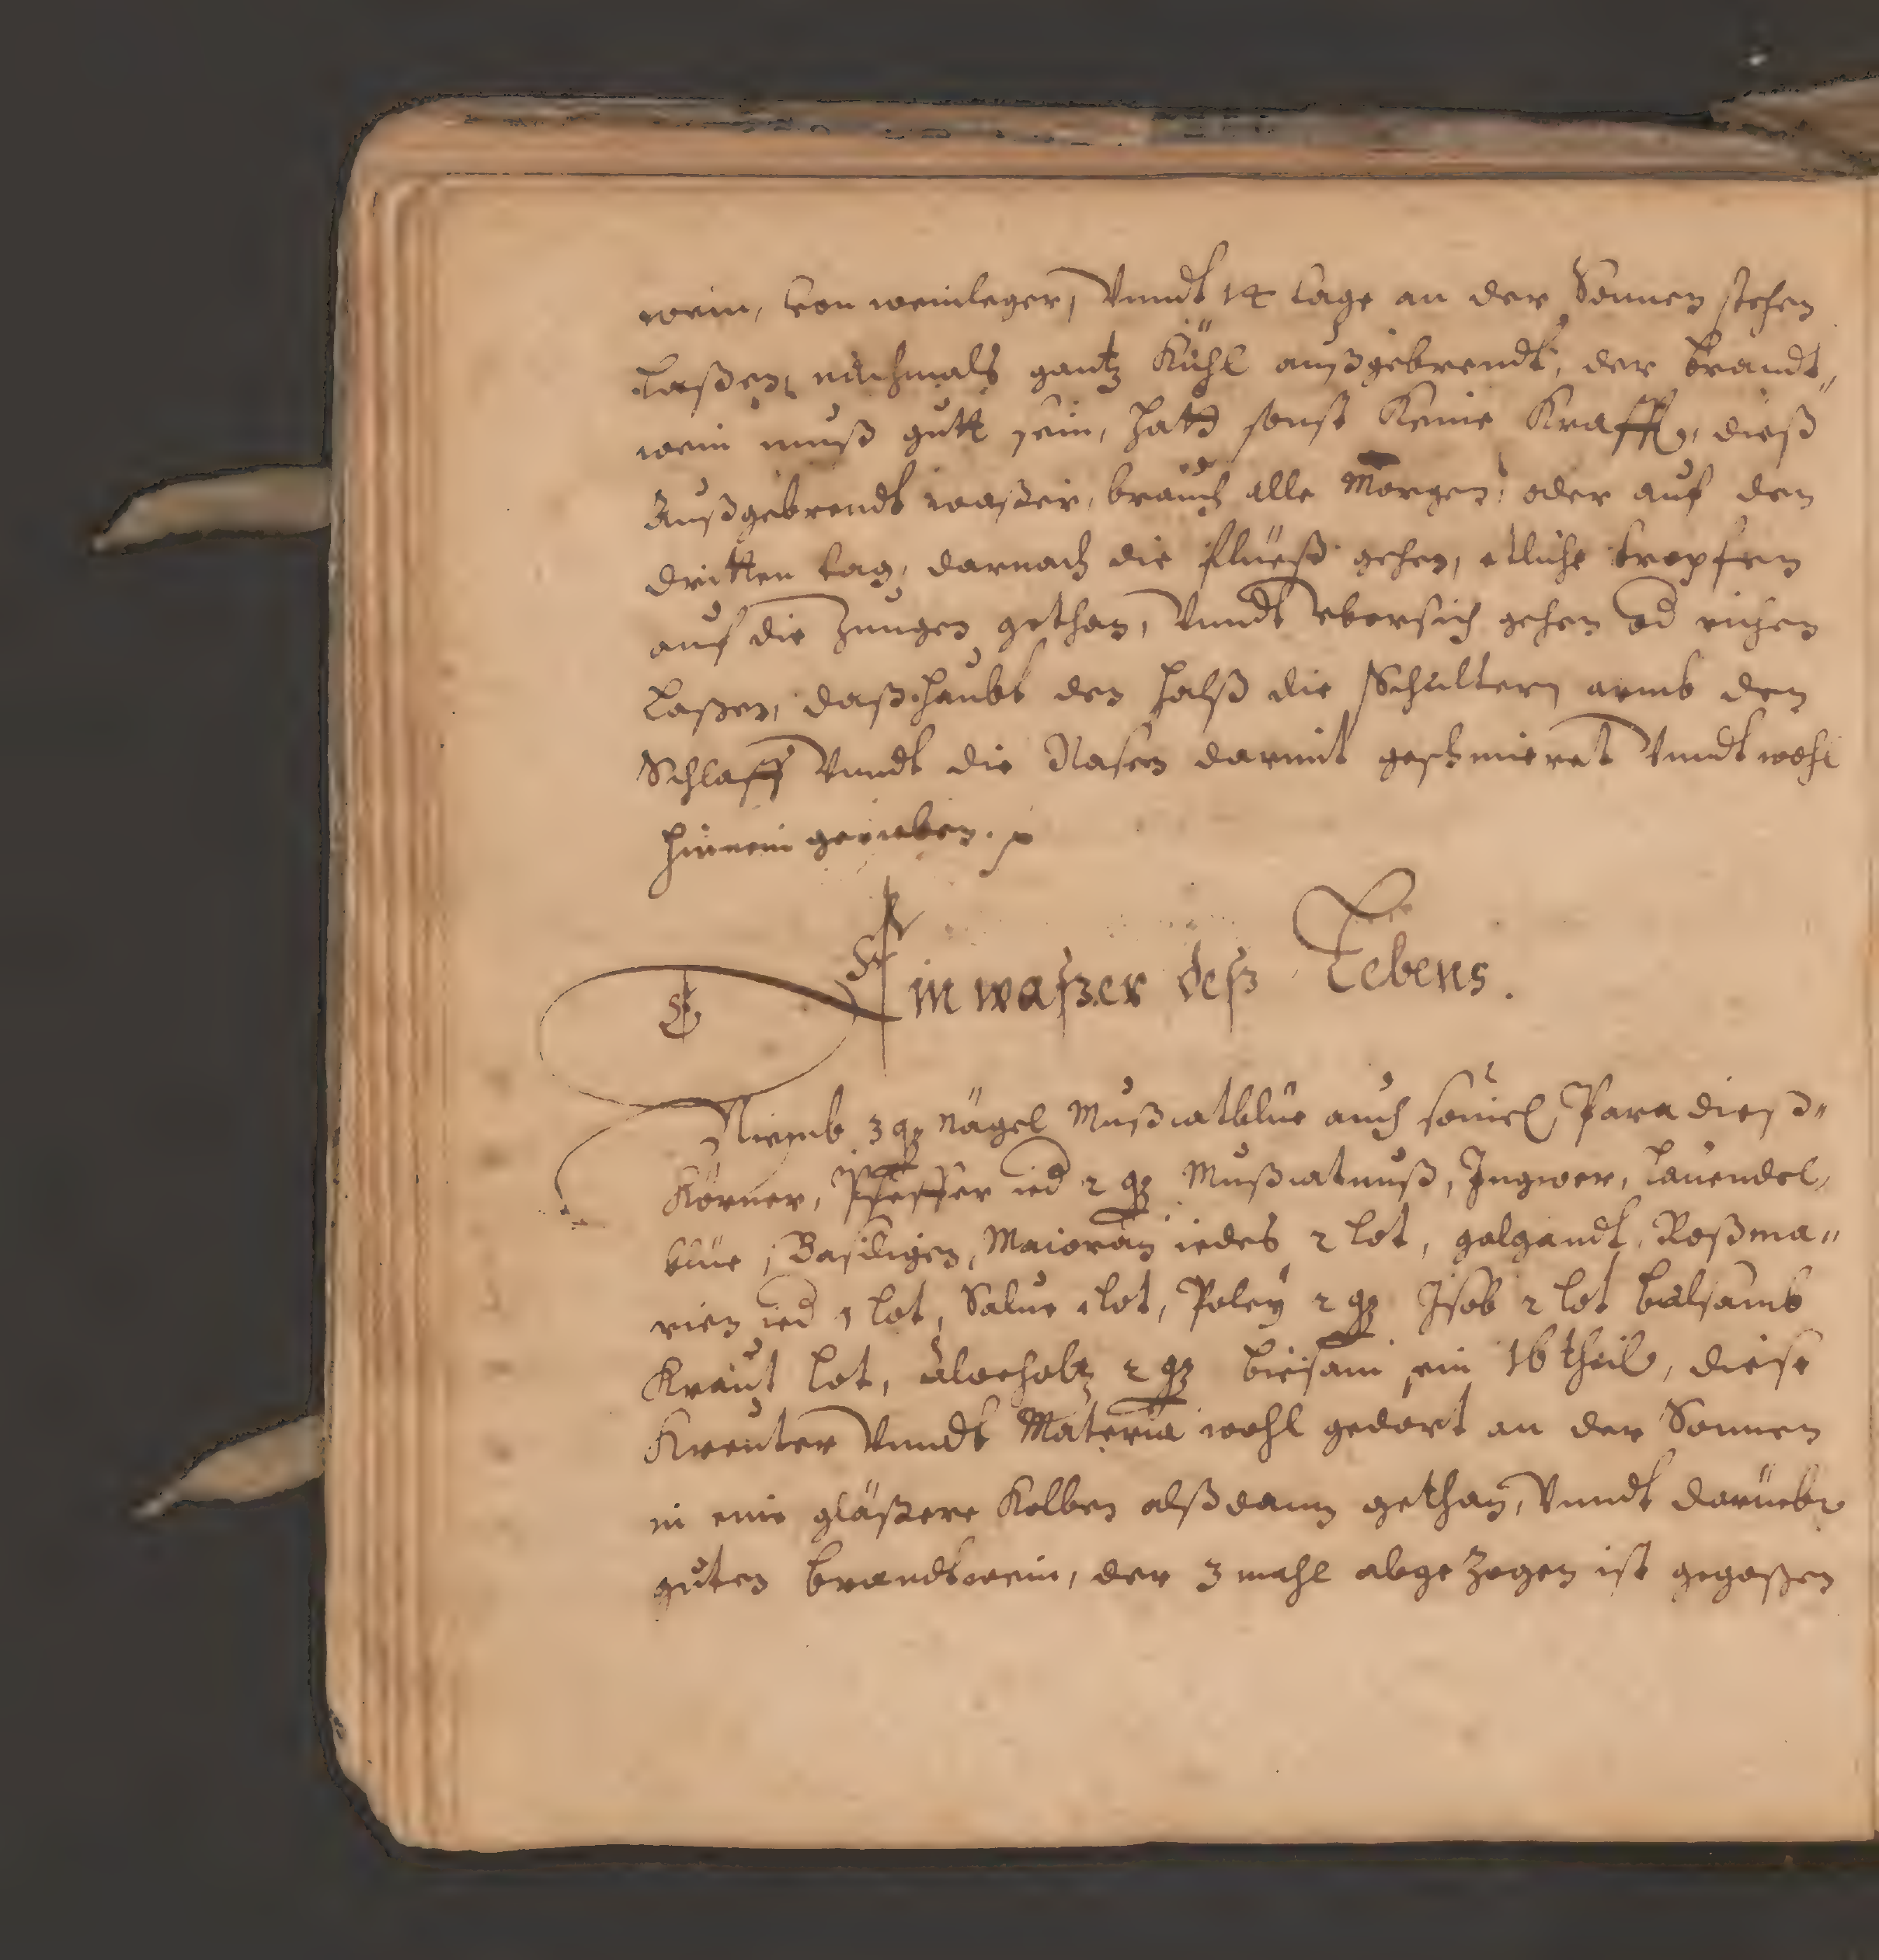 wein, von weinleger, Vnndt 14 tage an der Sonnen stehen
laßen, nachmals gantz Kühl außgebrendt, der brandt„
wein muß gutt sein, hatt sonst Keine Krafft, dieß
Außgebrendt waßer, brauch alle Morgen, oder auf den
dritten tag, darnach die flüeß gehen, etliche tropfen
auf die Zungen gethan, Vnndt vbersich gehen od richen
laßen, daß haubt den halß die Schultern armb den
Schlaff Vnndt die Nasen darmit geschmieret Vnndt wohl
hinnein gerieben.
Ein waßer deß Lebens.
Niemb 3 q Nägel Mußcatblüe auch souiel Paradieß„
Körner, Pfeffer ied 2 q Mußcatnuß, Ingwer, lauendel„
blüe, Basiligen, Maioran iedes 2 lot, galgandt, Roßma„
rien ied 1 lot, Salue 1 lot, Poley 2 q Isob 2 lot balsamb
Kraut lot, aloeholtz 2 q biesam ein 16 theil, diese
Kreuter Vnndt Materia wohl gedört an der Sonnen
in eine gläßere Kolben alßdann gethan, Vnndt darüeber
guten brandtwein, der 3 mahl abgezogen ist gegoßen